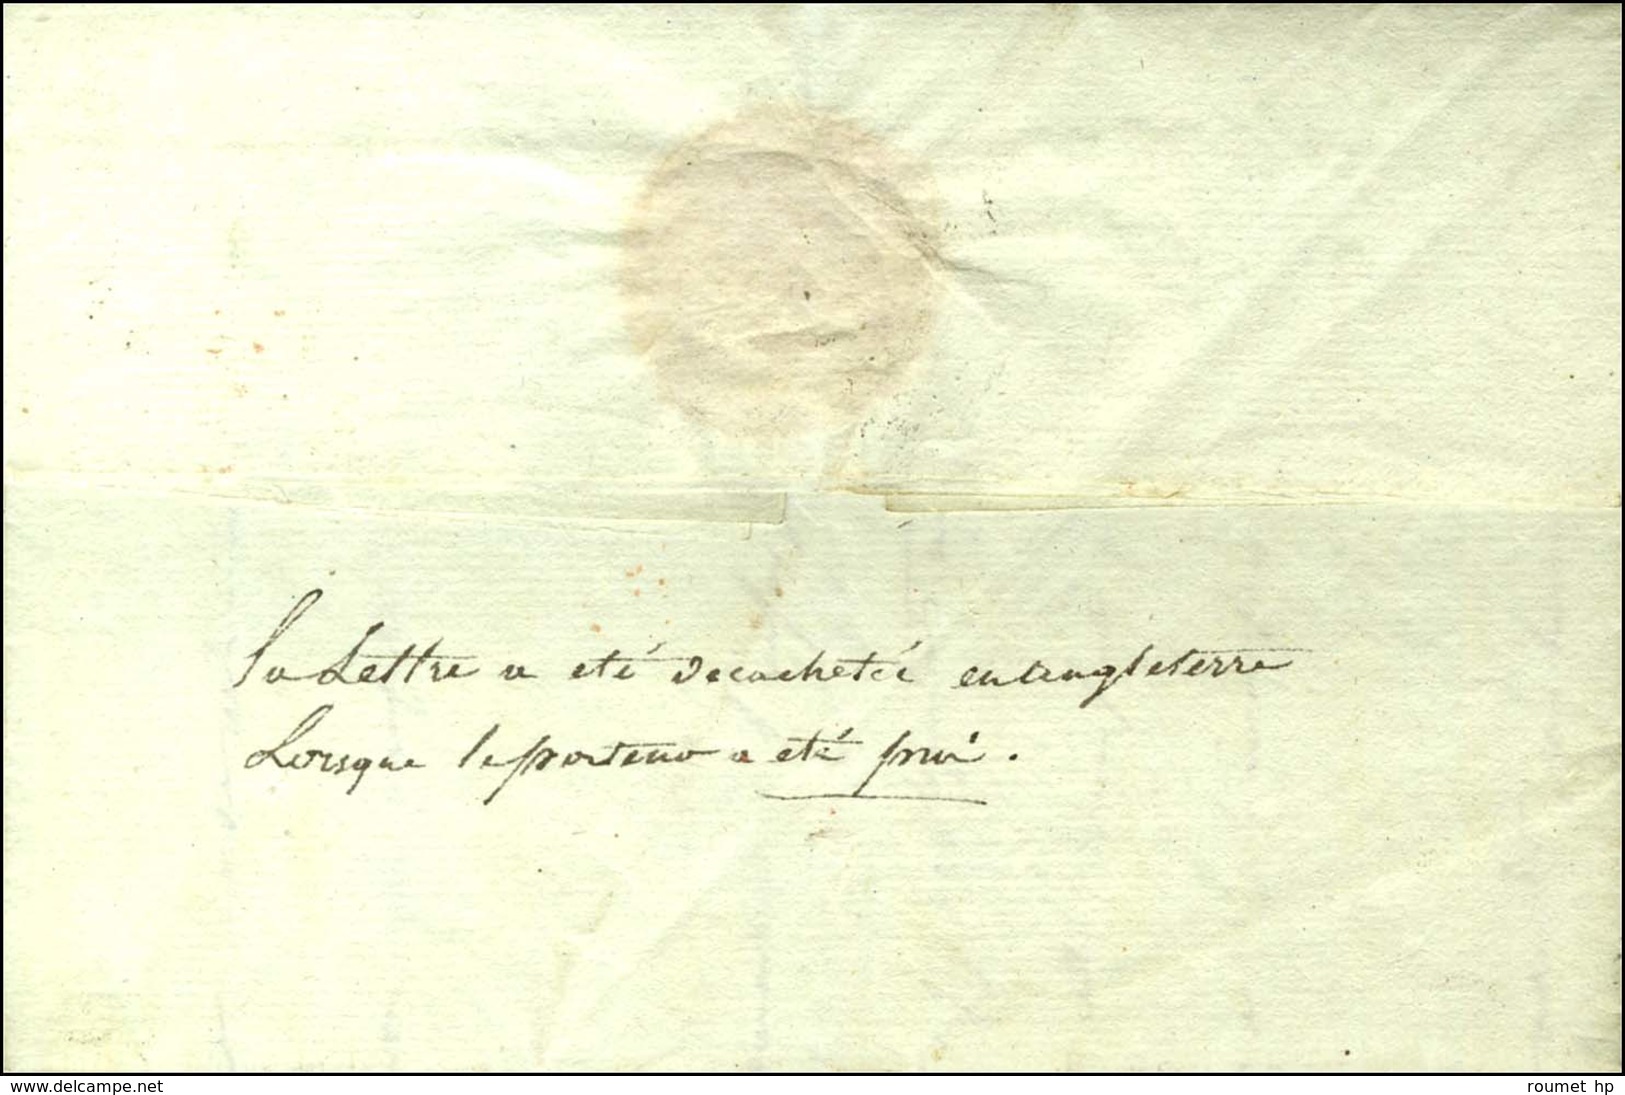 la Lettre a eté decachetée en angleterre
Lorsque le porteur a eté pris.
www.delcampe.net
roumet hp